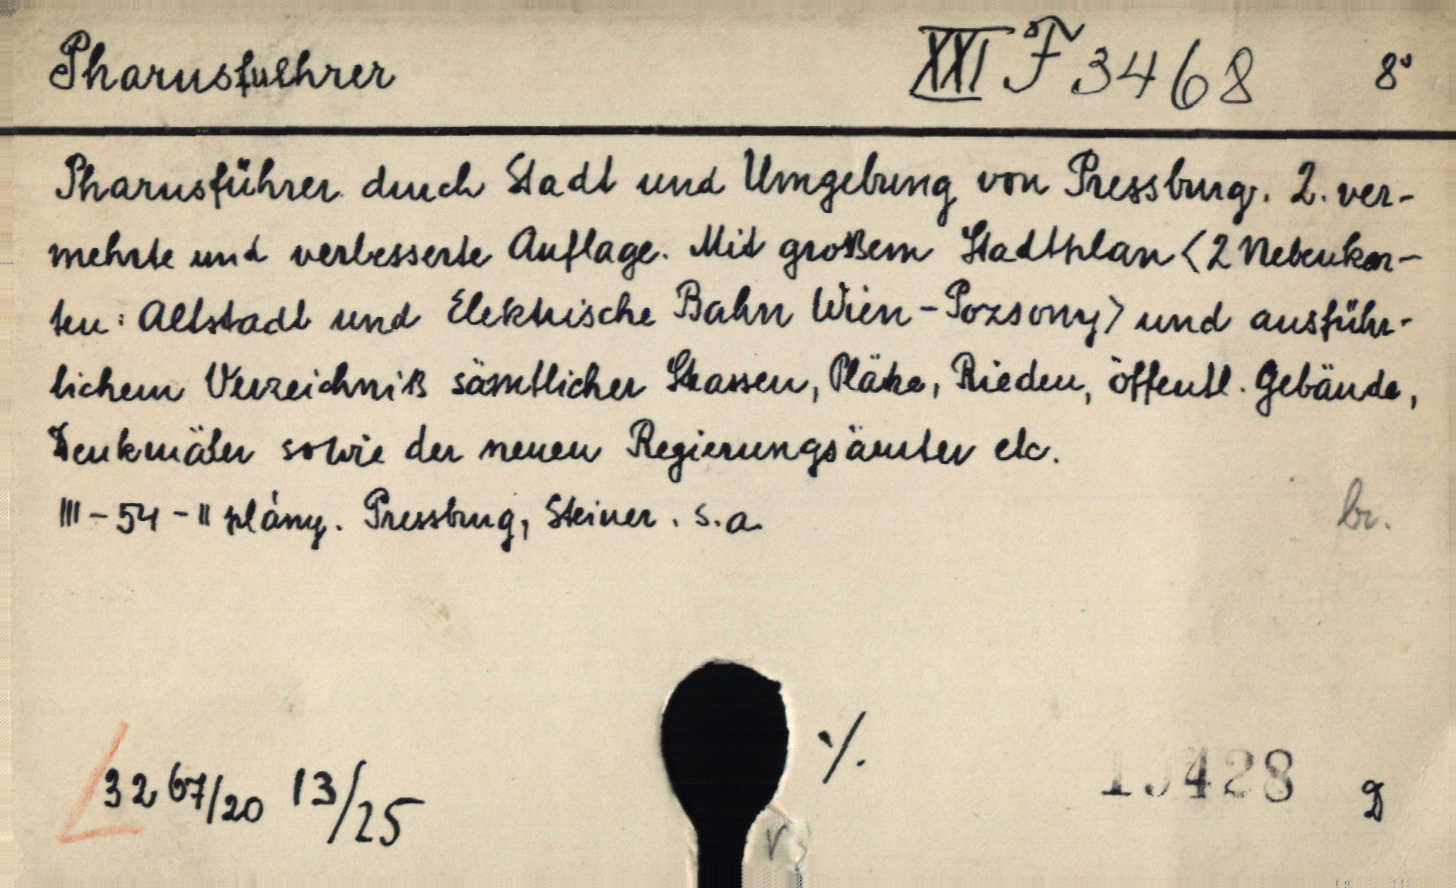 Pharusfuehrer XXI F 3468 8°
Pharusführer durch Stadt und Umgebung von Pressburg. 2. ver-
mehrte und verbesserte Auflage. Mit großem Stadtplan <2 Nebenkar-
ten: Altstadt und Elektrische Bahn Wien-Pozsony> und ausführ-
lichem Verzeichniß sämtlicher Strassen, Plätze, Rieden, öffentl. Gebäude,
Denkmäler sowie der neuen Regierungsämter etc.
III-54-II plány. Pressburg, Steiner. s.a.
br.
3267/20 13/25
./.
428 D